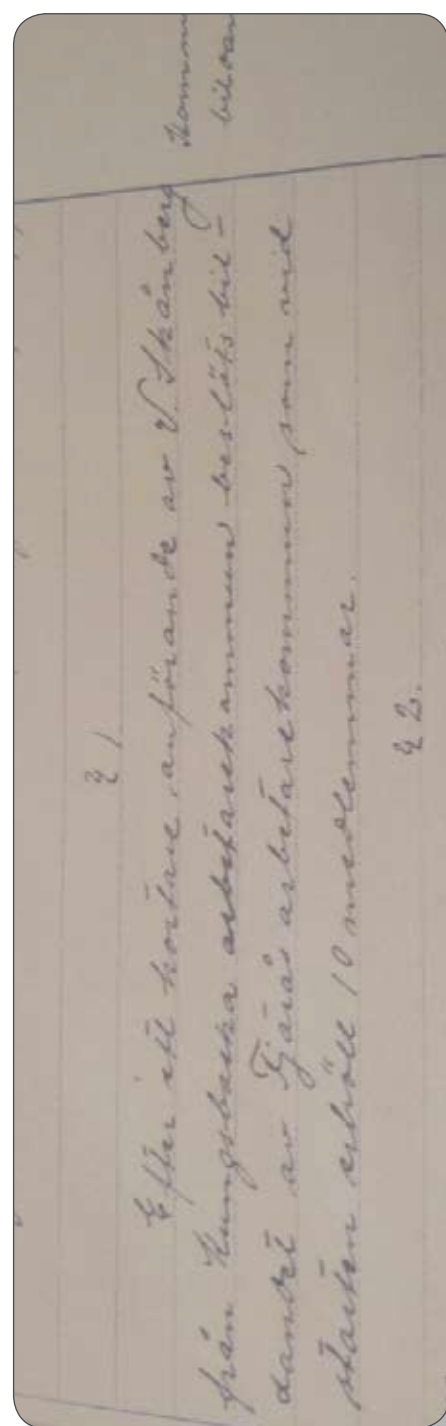 § 1
Efter ett kortare anförande av V. Skånberg
från Kungsbacka arbetarekommun beslöts bil-
dandet av Tjärås arbetarekommun som vid
starten erhöll 10 medlemmar.
§ 2.
Komm